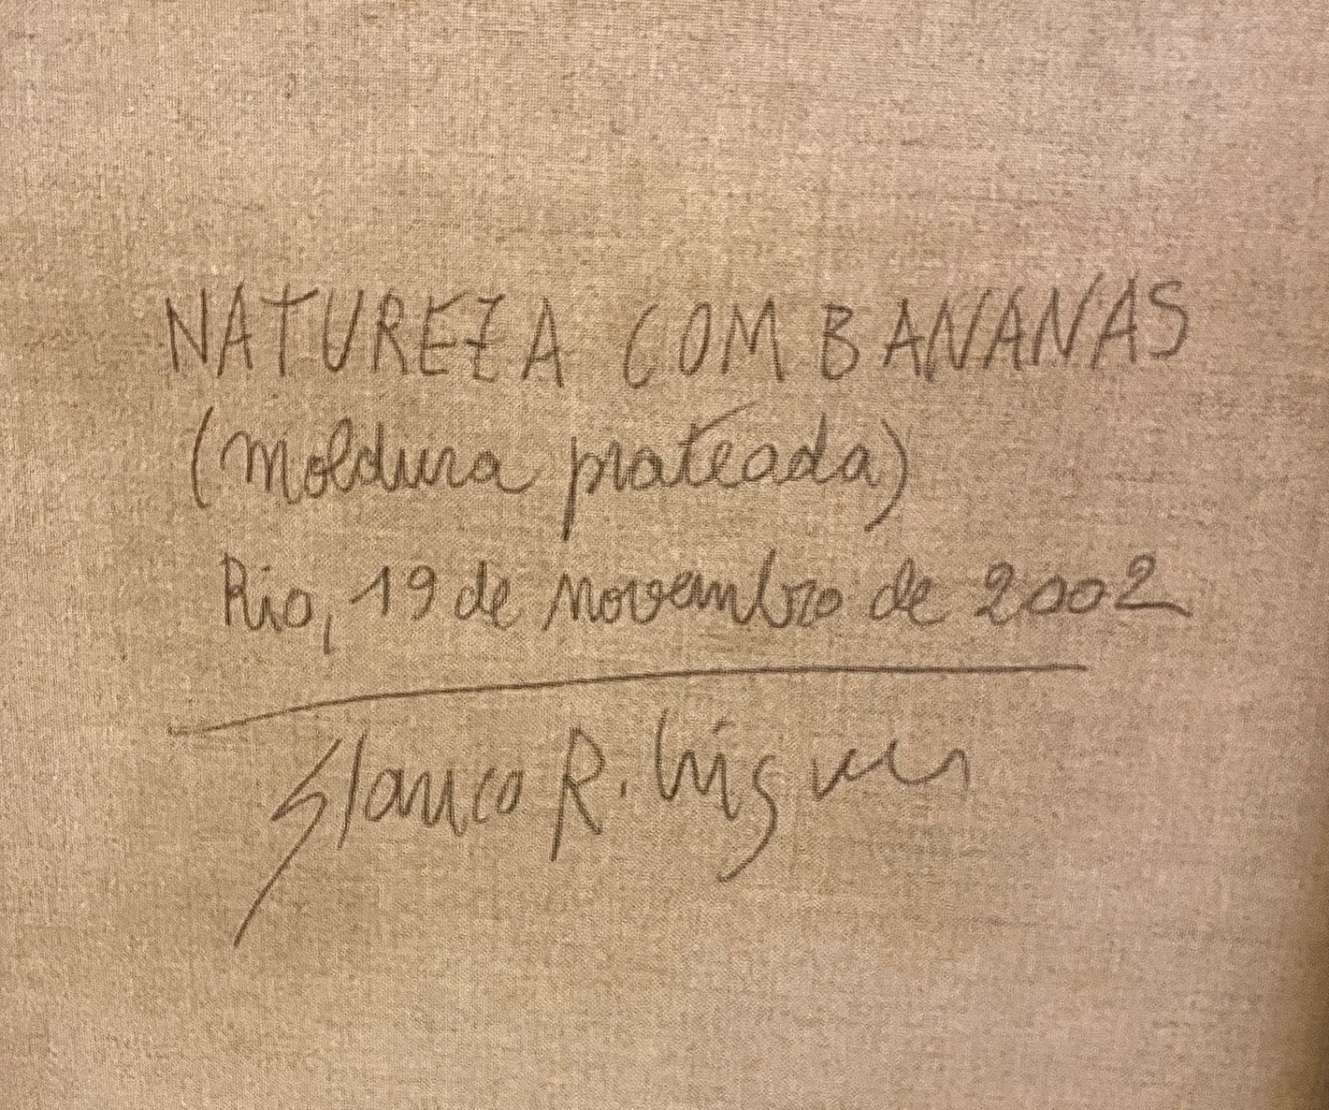 NATUREZA COM BANANAS
(Moldura prateada)
Rio, 19 de novembro de 2002
Glauco R.